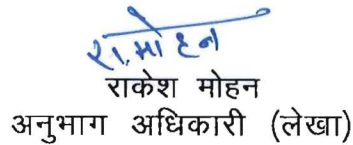 रा. मोहन
राकेश मोहन
अनुभाग अधिकारी (लेखा)